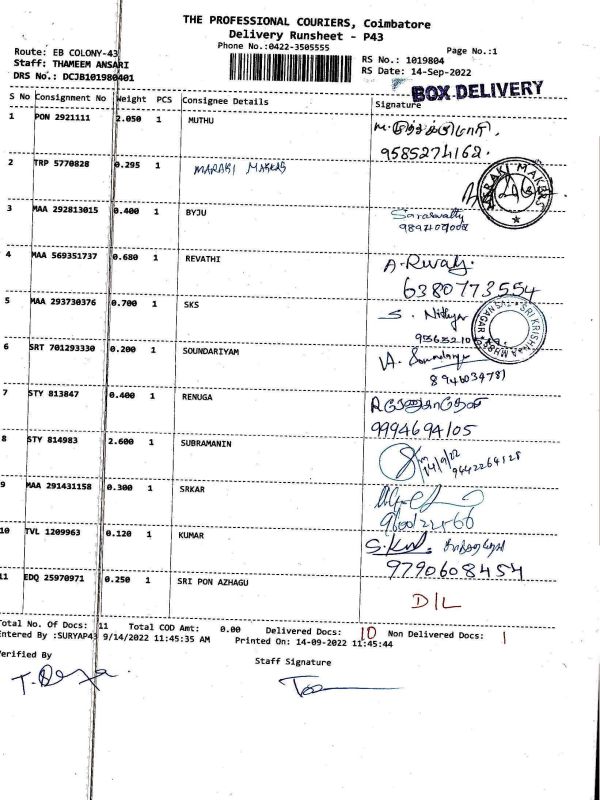 THE PROFESSIONAL COURIERS, Coimbatore
Delivery Runsheet - P43
Phone No.:0422-3505555
Page No.:1
Route: EB COLONY-43
Staff: THAMEEM ANSARI
DRS No.: DCJB101980401
RS No.: 1019804
RS Date: 14-Sep-2022
BOX DELIVERY
S No Consignment No Weight PCS Consignee Details Signature
1 PON 2921111 2.050 1 MUTHU
9585274162.
2 TRP 5770828 0.295 1 MARAKI MAKKAS
3 MAA 292813015 0.400 1 BYJU Saraswathy
4 MAA 569351737 0.680 1 REVATHI A. Revathy.
6380773554
5 MAA 293730376 0.700 1 SKS S. Nithya
6 SRT 701293330 0.200 1 SOUNDARIYAM A. Soundarya
8946034781
7 STY 813847 0.400 1 RENUGA
9994694105
8 STY 814983 2.600 1 SUBRAMANIN 14/9/22
9442264128
9 MAA 291431158 0.300 1 SRKAR
10 TVL 1209963 0.120 1 KUMAR
9790608454
11 EDQ 25970971 0.250 1 SRI PON AZHAGU
D/L
Total No. Of Docs: 11 Total COD Amt: 0.00 Delivered Docs: 10 Non Delivered Docs: 1
Entered By :SURYAP43 9/14/2022 11:45:35 AM Printed On: 14-09-2022 11:45:44
Verified By
Staff Signature